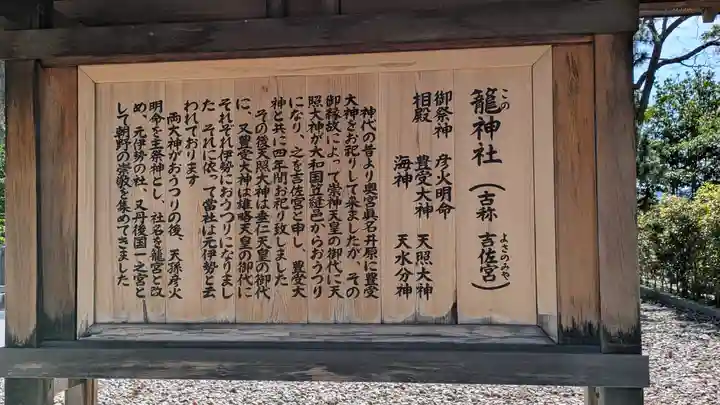 この
籠神社（古称 吉佐宮）
よさのみや
御祭神 彦火明命
相殿 豊受大神 天照大神
海神 天水分神
神代の昔より奥宮眞名井原に豊受
大神をお祀りして来ましたが、その
御縁故によって崇神天皇の御代に天
照大神が大和国笠縫邑からおうつり
になり、之を吉佐宮と申し、豊受大
神と共に四年間お祀り致しました
その後天照大神は垂仁天皇の御代
に、又豊受大神は雄略天皇の御代に
それぞれ伊勢におうつりになりまし
た。それに依って當社は元伊勢と云
われております
両大神がおうつりの後、天孫彦火
明命を主祭神とし、社名を籠宮と改
め、元伊勢の社、又丹後国一之宮と
して朝野の崇敬を集めてきました